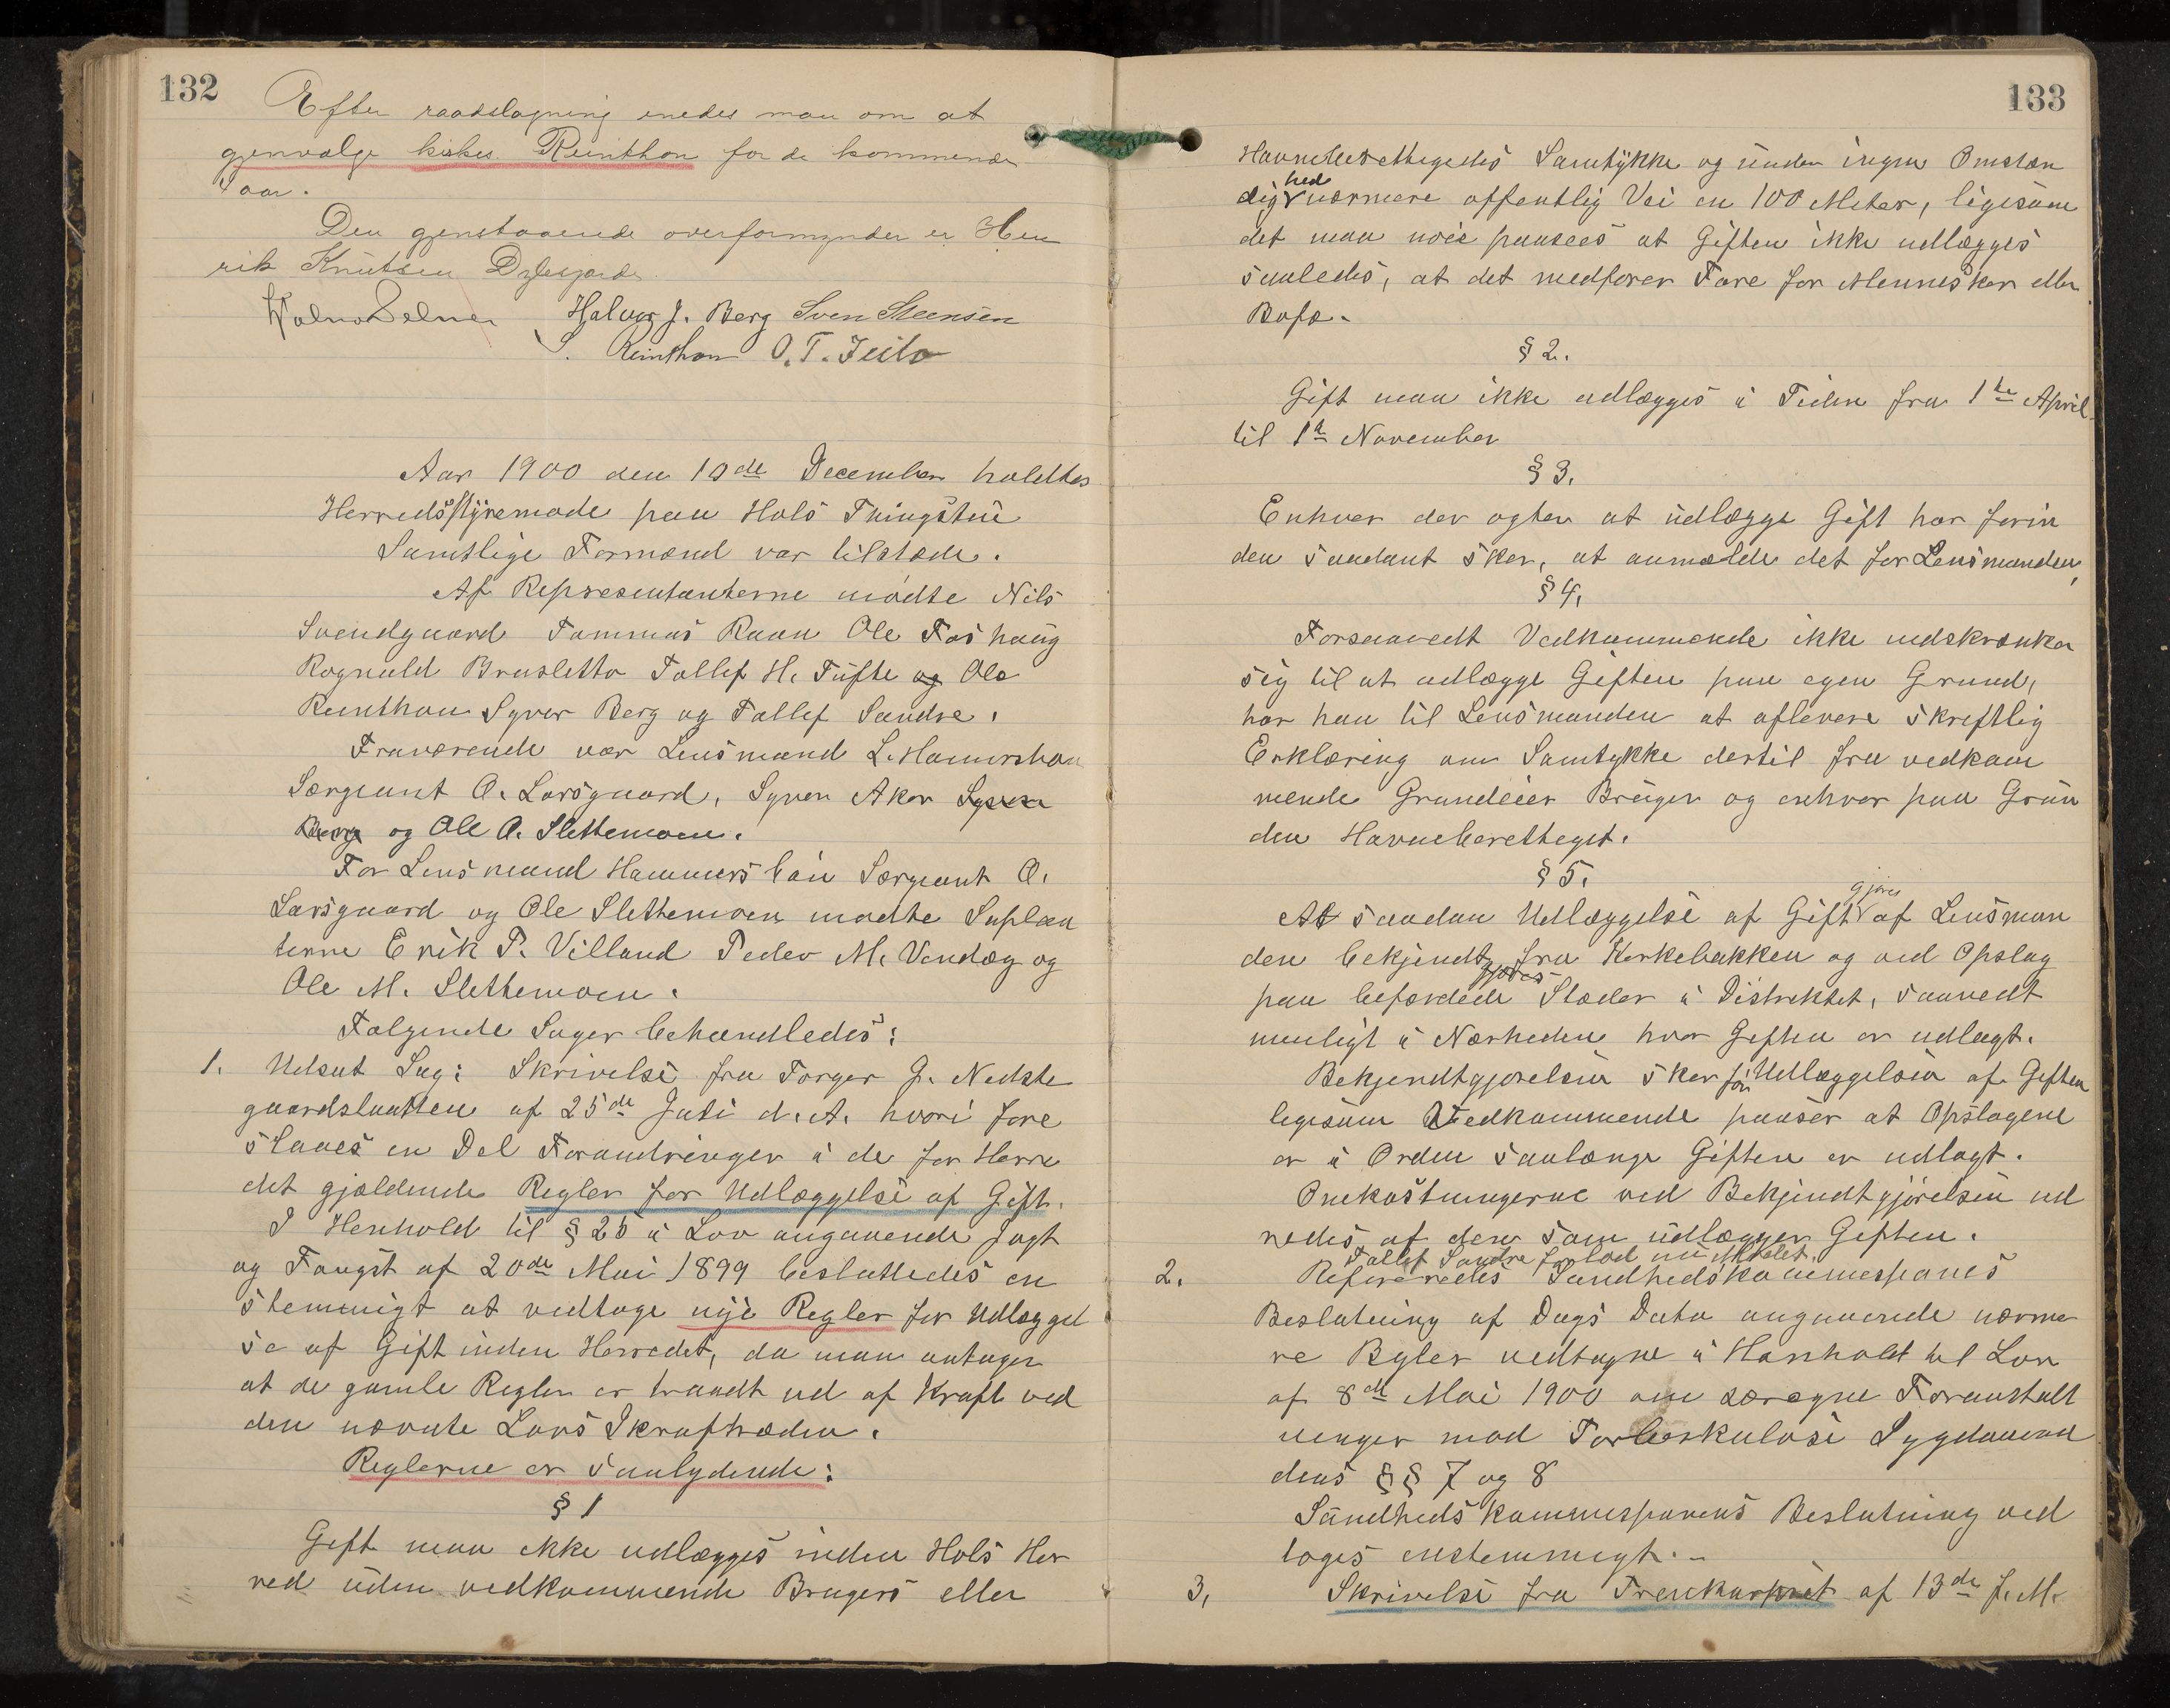 132
Efter raadslagning enedes man om at
gjenvælge Reinthon for de kommende
4 aar.
Den gjenstaaende overformynder er Hen
rik Knutsen
Halvor J. Berg Sven Steensen
Reinthon O. T. Jeilo
Aar 1900 den 10de December holdtes
Herredsstyremøde paa Hols Thingstue
Samtlige Formænd var tilstæde.
Af Representanterne mødte Nils
Svendgaard Tommas Raan Ole Foshaug
Ragnald Brusletto Tollef H. Tufte og Ole
Reinthon Syver Berg og Tollef Sundre.
Fraværende var Lensmand L. Hamersbøen
Sergeant O. Larsgaard, Syver Aker Syver
Berg og Ole O. Slettemoen.
For Lensmand Hammersbøen Sergeant O.
Larsgaard og Ole Slettemoen mødte Suplean
terne Erik T. Villand Peder M. Vendøg og
Ole M. Slettemoen.
Følgende Sager behandledes:
1. Udsat Sag: Skrivelse fra Torger G. Nedste
gaardslaatten af 25de Juli d. A. hvori fore
slaaes en Del Forandringer i de for Herre
det gjældende Regler for Udlæggelse af Gift.
I Henhold til § 25 i Lov angaaende Jagt
og Fangst af 20de Mai 1899 besluttedes en
stemmigt at vedtage nye Regler for Udlæggel
se af Gift inden Herredet, da man antager
at de gamle Regler er traadt ud af Kraft ved
den nævnte Lovs Ikrafttræden.
Reglerne er saalydende:
§ 1
Gift maa ikke udlægges inden Hols Her
red uden vedkommende Brugers eller
133
Havneberettigedes Samtykke og under ingen Omstæn
dighed nærmere offentlig Vei en 100 Meter, ligesom
det maa nøie paasees at Giften ikke udlægges
saaledes, at det medfører Fare for Mennesker eller
Bufæ.
§ 2.
Gift maa ikke udlægges i Tiden fra 1te April
til 1te November
§ 3.
Enhver der agter at udlægge Gift har forin
den saadant sker, at anmælde det for Lensmanden,
§ 4.
Forsaavedt Vedkommende ikke indskrænker
sig til at udlægge Giften paa egen Grund,
har han til Lensmanden at aflevere skriftlig
Erklæring om Samtykke dertil fra vedkom
mende Grundeier Bruger og enhver paa Grun
den Havneberettiget.
§ 5.
At saadan Udlæggelse af Gift gjøres af Lensman
den bekjendtgjøres fra Kirkebakken og ved Opslag
paa befærdede Stæder i Distriktet, saavidt
muligt i Nærheden hvor Giften er udlagt.
Bekjendtgjørelsen sker før Udlæggelsen af Giften
ligesom Vedkommende paaser at Opslagene
er i Orden saalænge Giften er udlagt.
Omkostningerne ved Bekjendtgjørelsen ud
redes af den som udlægger Giften.
Tollef Sundre forlod nu Mødet.
2. Refereredes Sundhedskommesjones
Beslutning af Dags Dato angaaende nærme
re Regler vedtagne i Henhold til Lov
af 8de Mai 1900 om særegne Foranstalt
ninger mod Tuberkuløse Sygdomme
dens §§ 7 og 8
Sundhedskommesjonens Beslutning ved
toges enstemmigt.-
3. Skrivelse fra af 13de f. M.